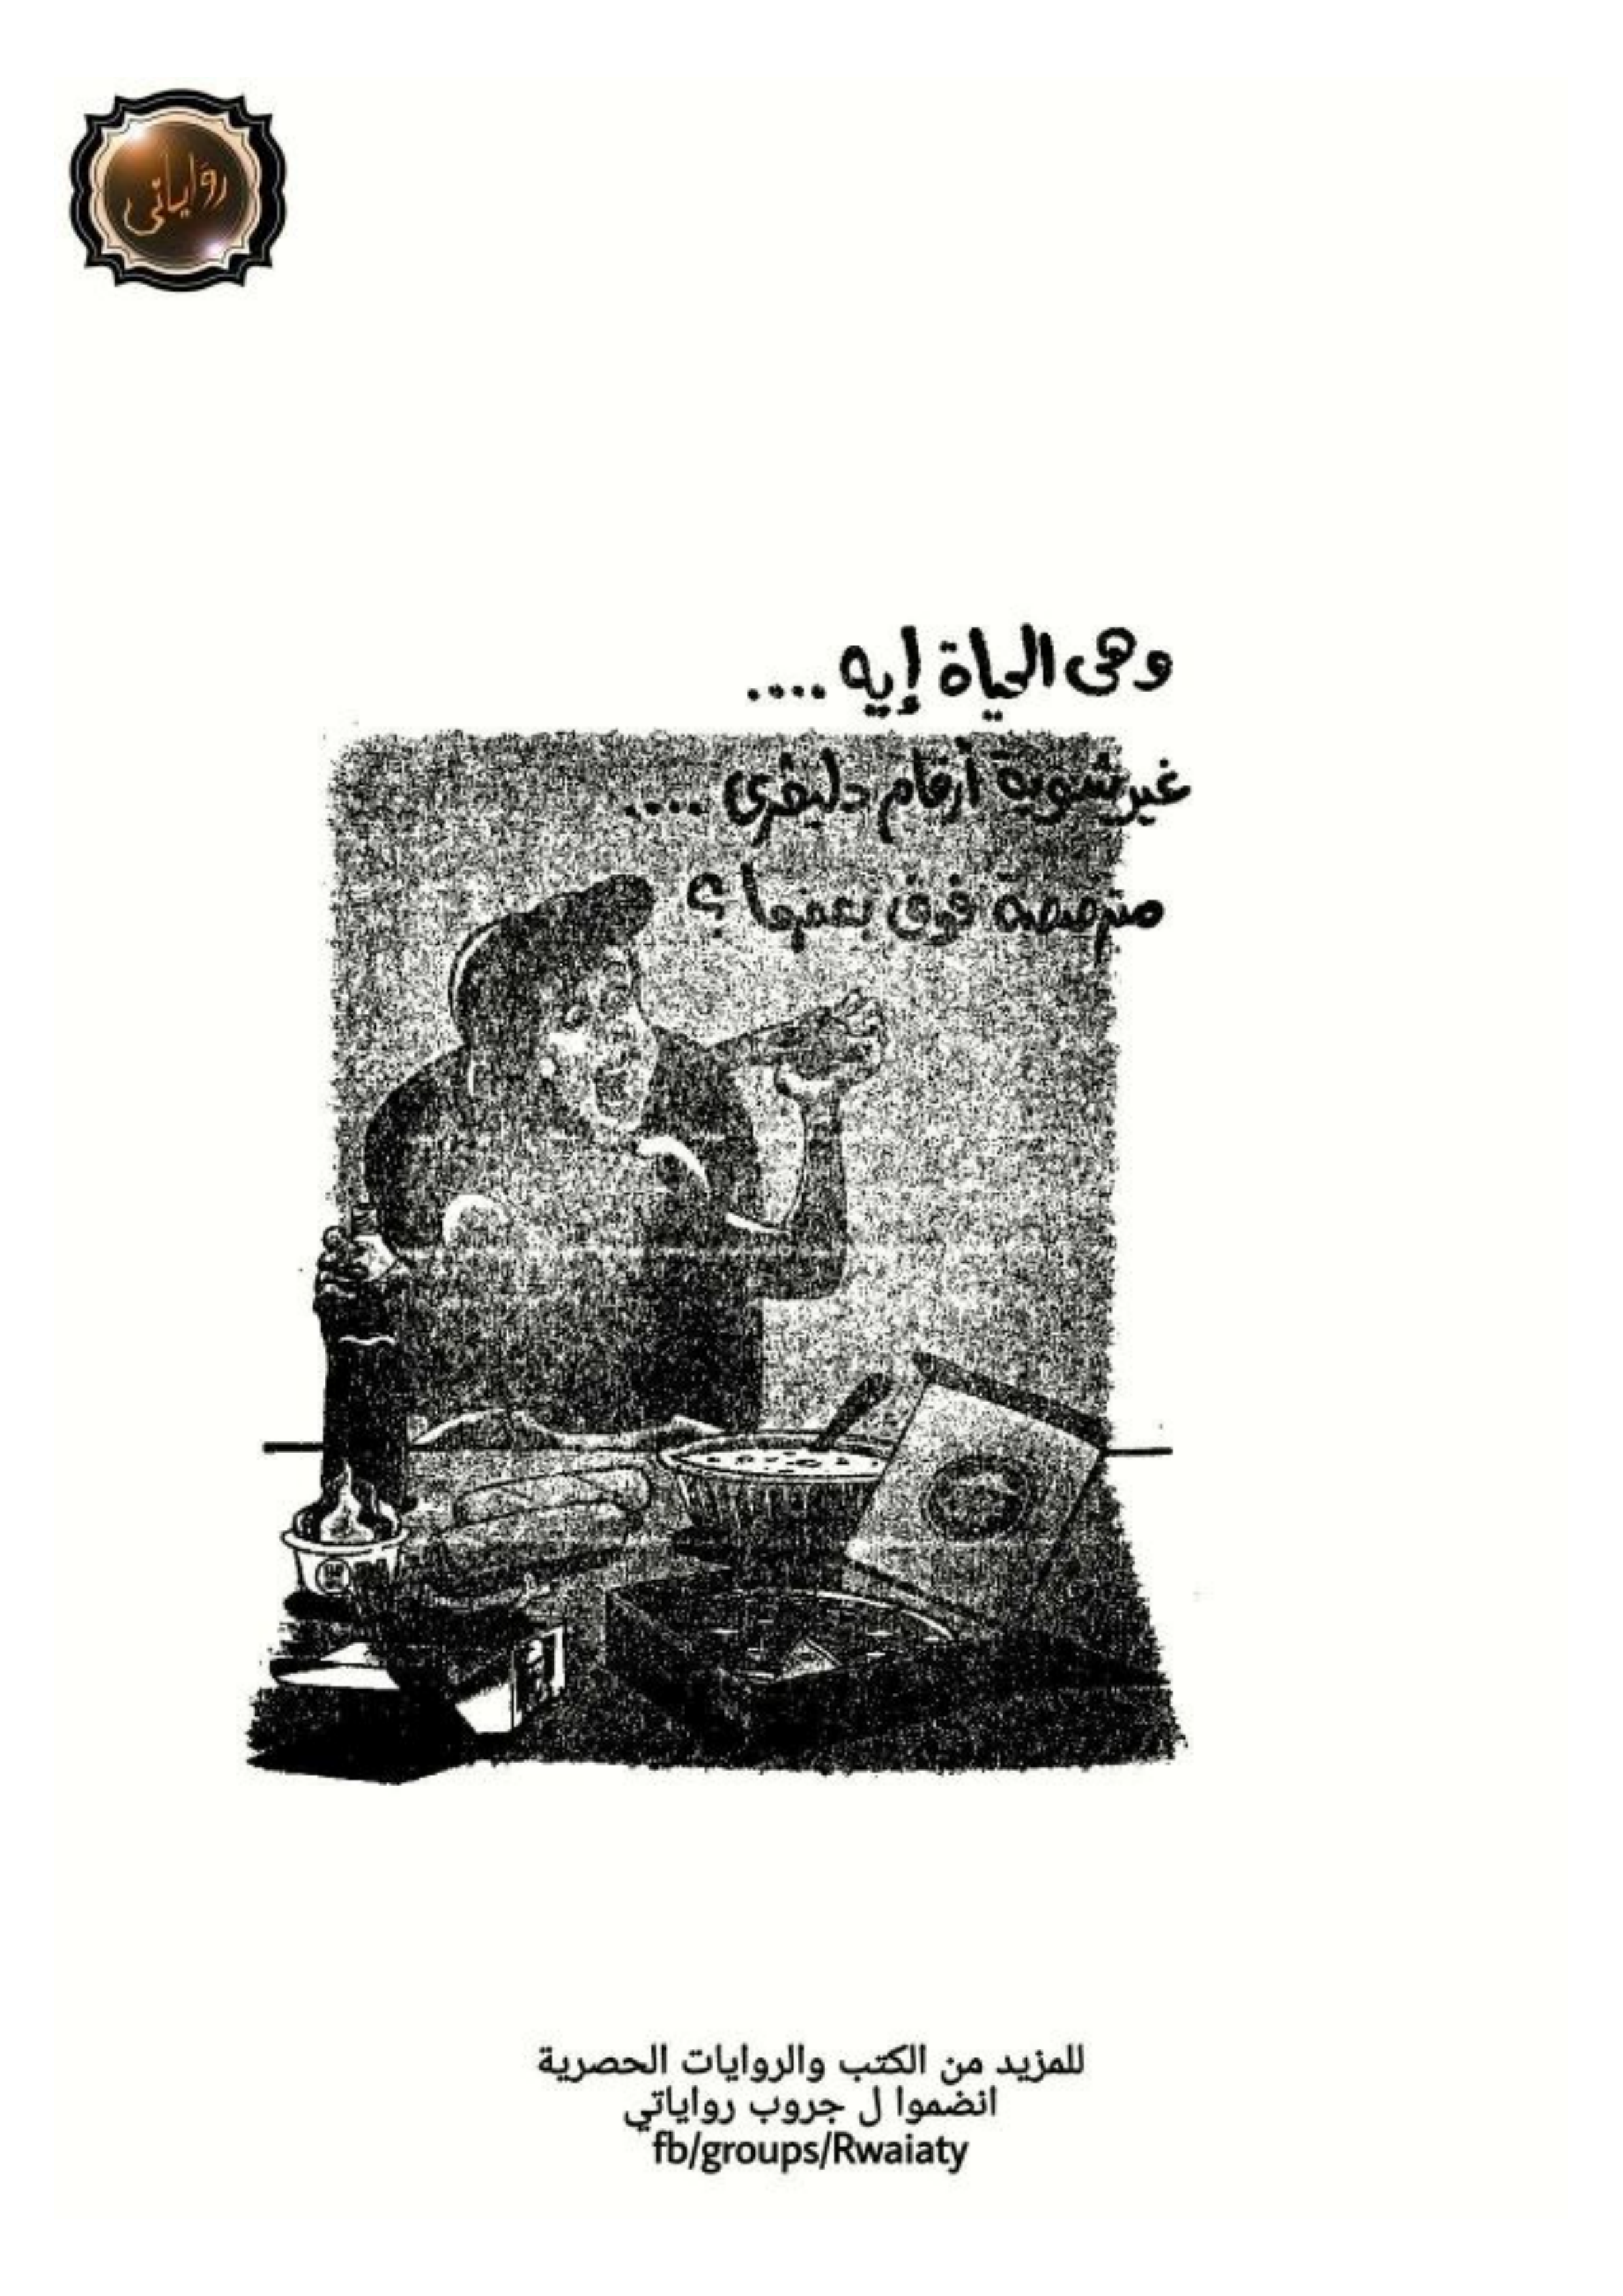 رواياتي
وهى الحياة إيه ....
غير شوية أرقام دليفرى ....
مترصصة فوق بعضها ؟
للمزيد من الكتب والروايات الحصرية
انضموا ل جروب رواياتي
fb/groups/Rwaiaty